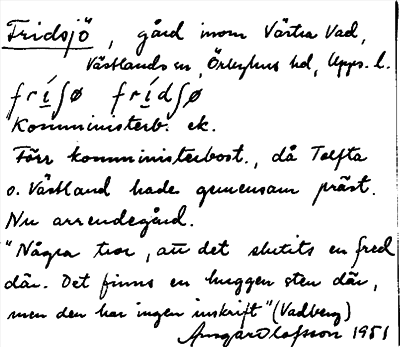 Fridsjö, gård inom Västra Vad,
Västlands sn, Örbyhus hd, Upps. l.
frí̱ʃø frí̱dʃø
Komministerb. ek.
Förr komministerbost., då Tolfta
o. Västland hade gemensam präst.
Nu arrendegård.
"Några tror, att det slutits en fred
där. Det finns en huggen sten där,
men den har ingen inskrift" (Vadberg)
Ansgar Olofsson 1951